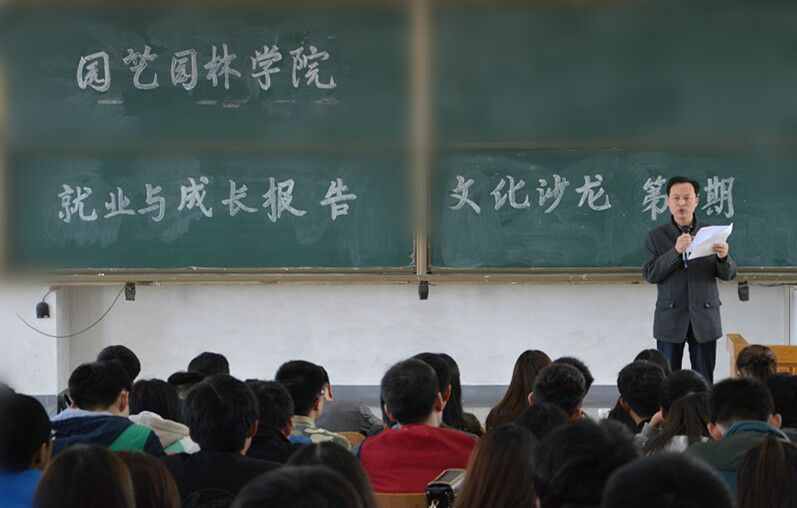 园艺园林学院
就业与成长报告
文化沙龙 第 期